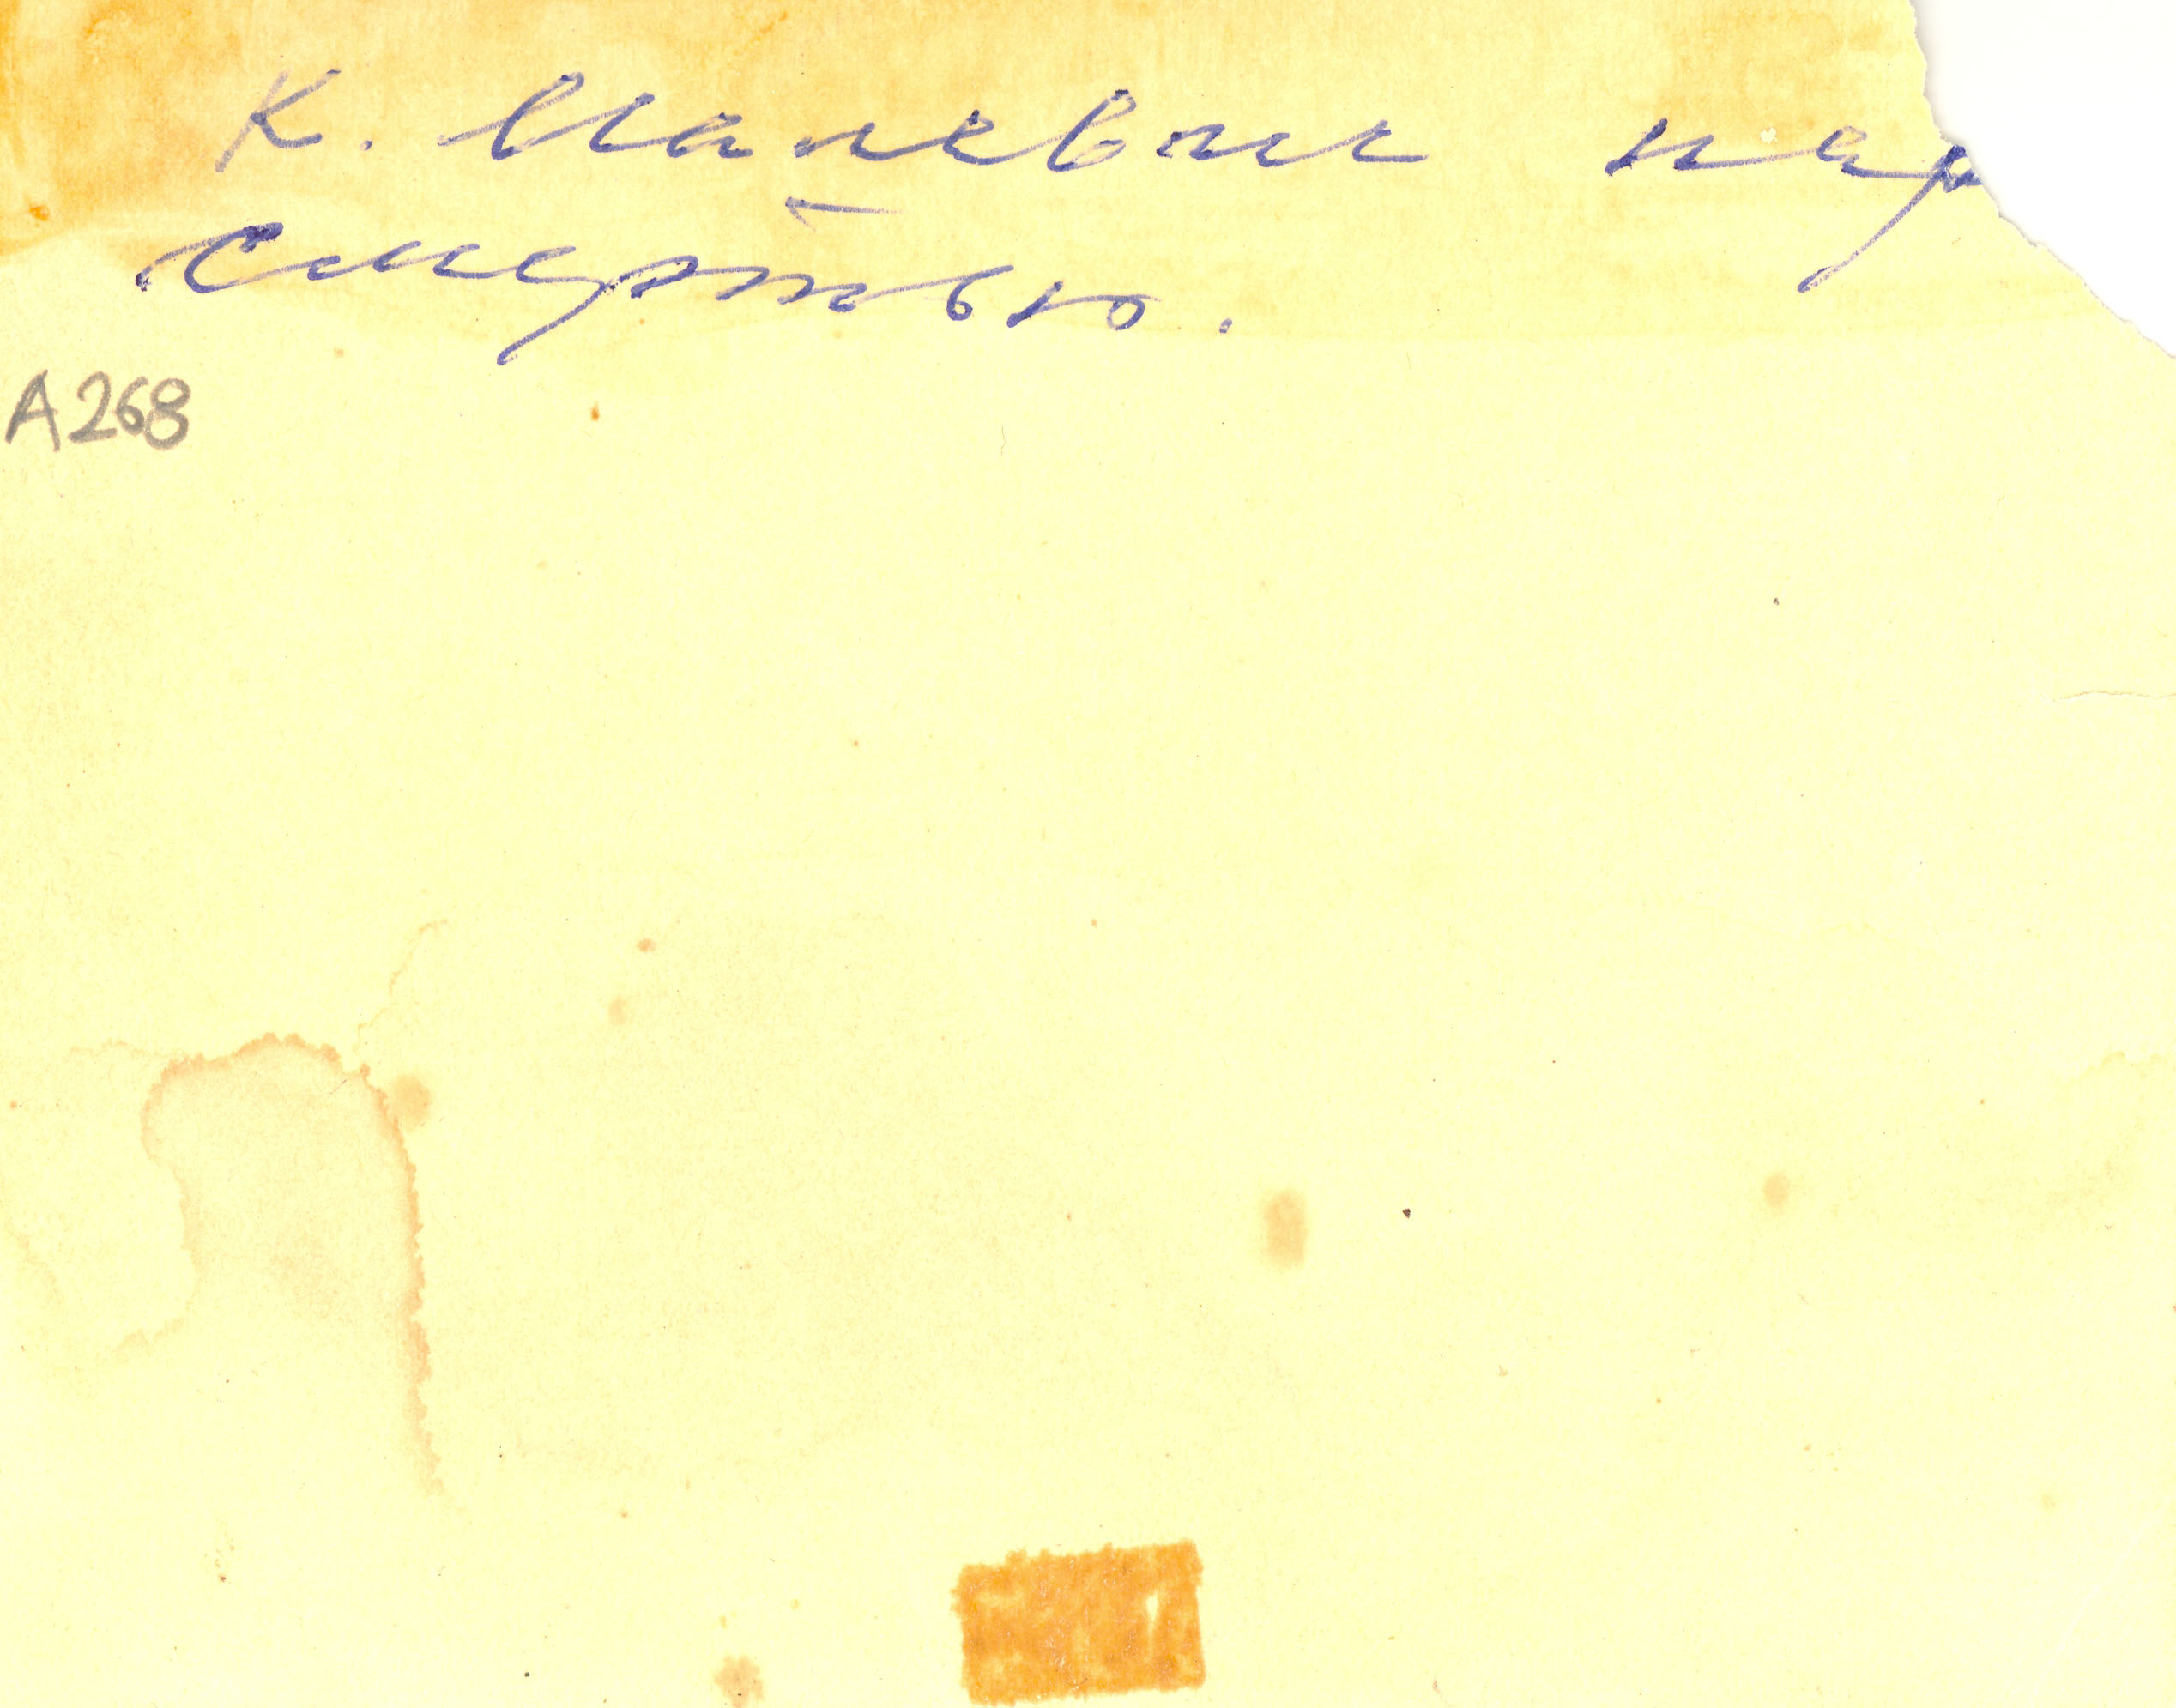 К. Малевич пер
смертью.
A268